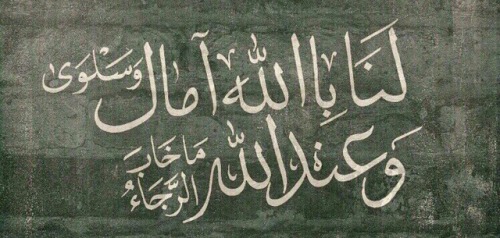 لَنَا بِاالله آمال وَسَلْوَى
وَعند الله مَا خَابَ الرَّجَاءُ